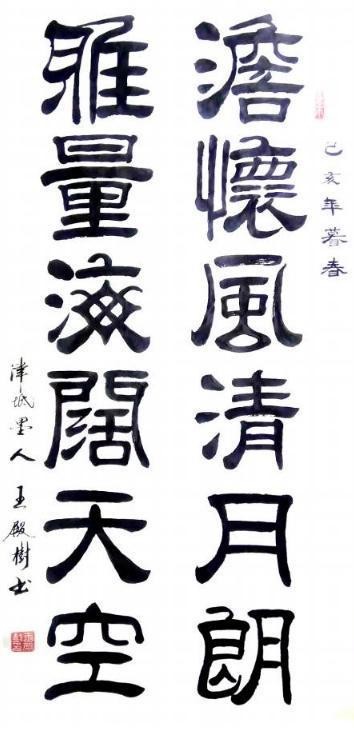 己亥年暮春
澹懷風清月朗
雅量海闊天空
津城墨人王殿樹书